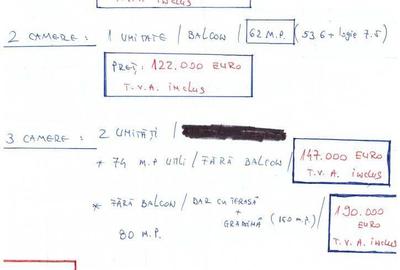 2 CAMERE: 1 UNITATE / BALCON / 62 M.P. (53.6 + logie 7.5)
PREȚ: 122.000 EURO
T.V.A. inclus
3 CAMERE: 2 UNITĂȚI /
* 74 M.P UTILI / FĂRĂ BALCON / 147.000 EURO
T.V.A. inclus
* FĂRĂ BALCON / DAR CU TERASĂ + GRĂDINĂ (150 m.p.) / 190.000 EURO
80 M.P.
T.V.A inclus